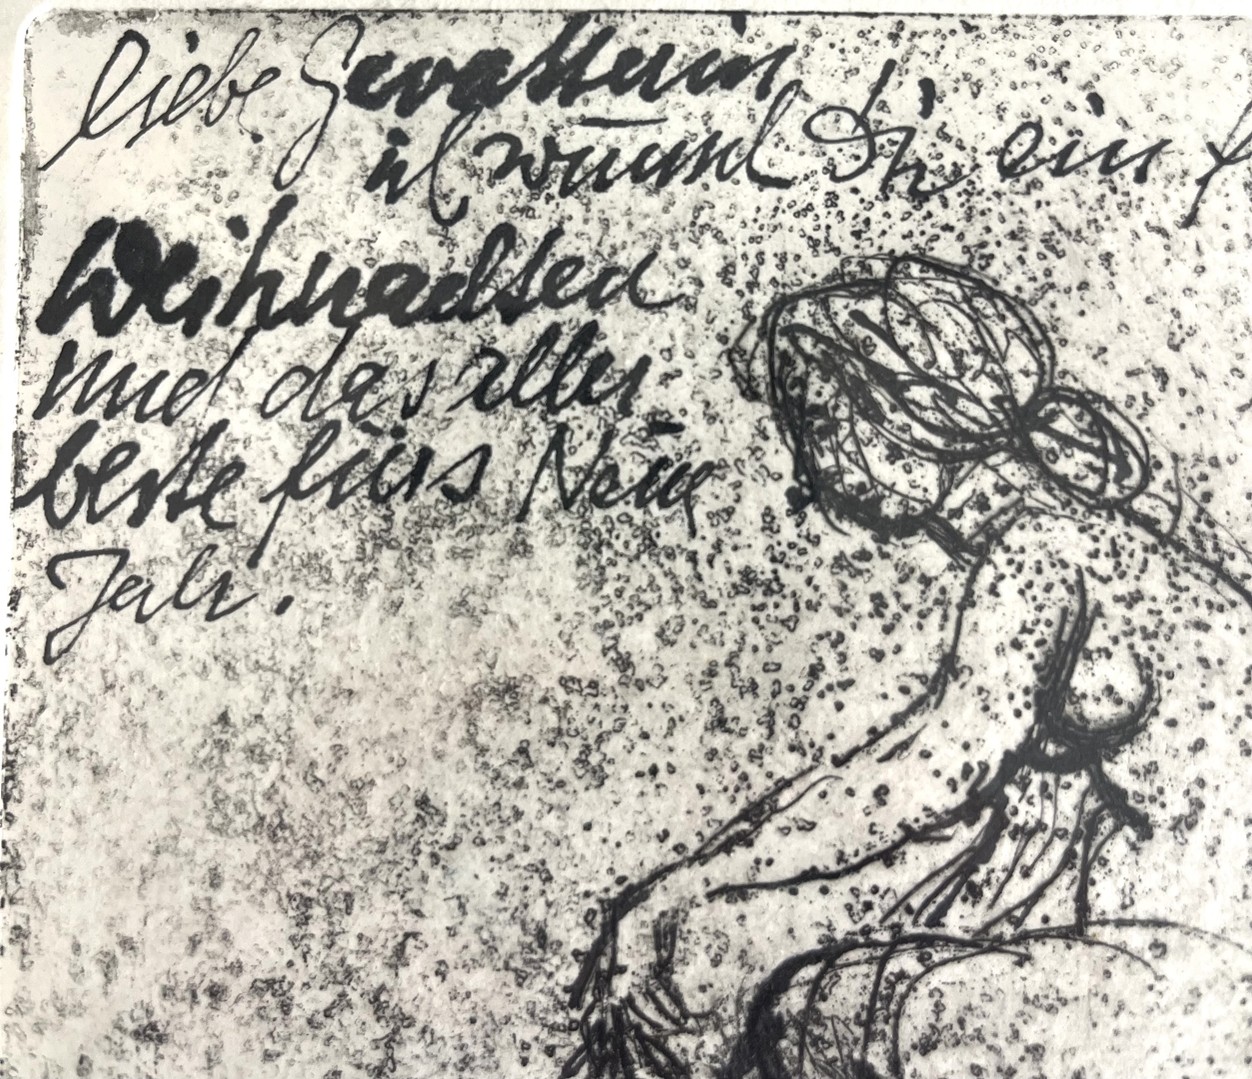 liebe Gevatterin
ich wünsch Dir ein
Weihnachten
und das aller
beste fürs Neue
Jahr.